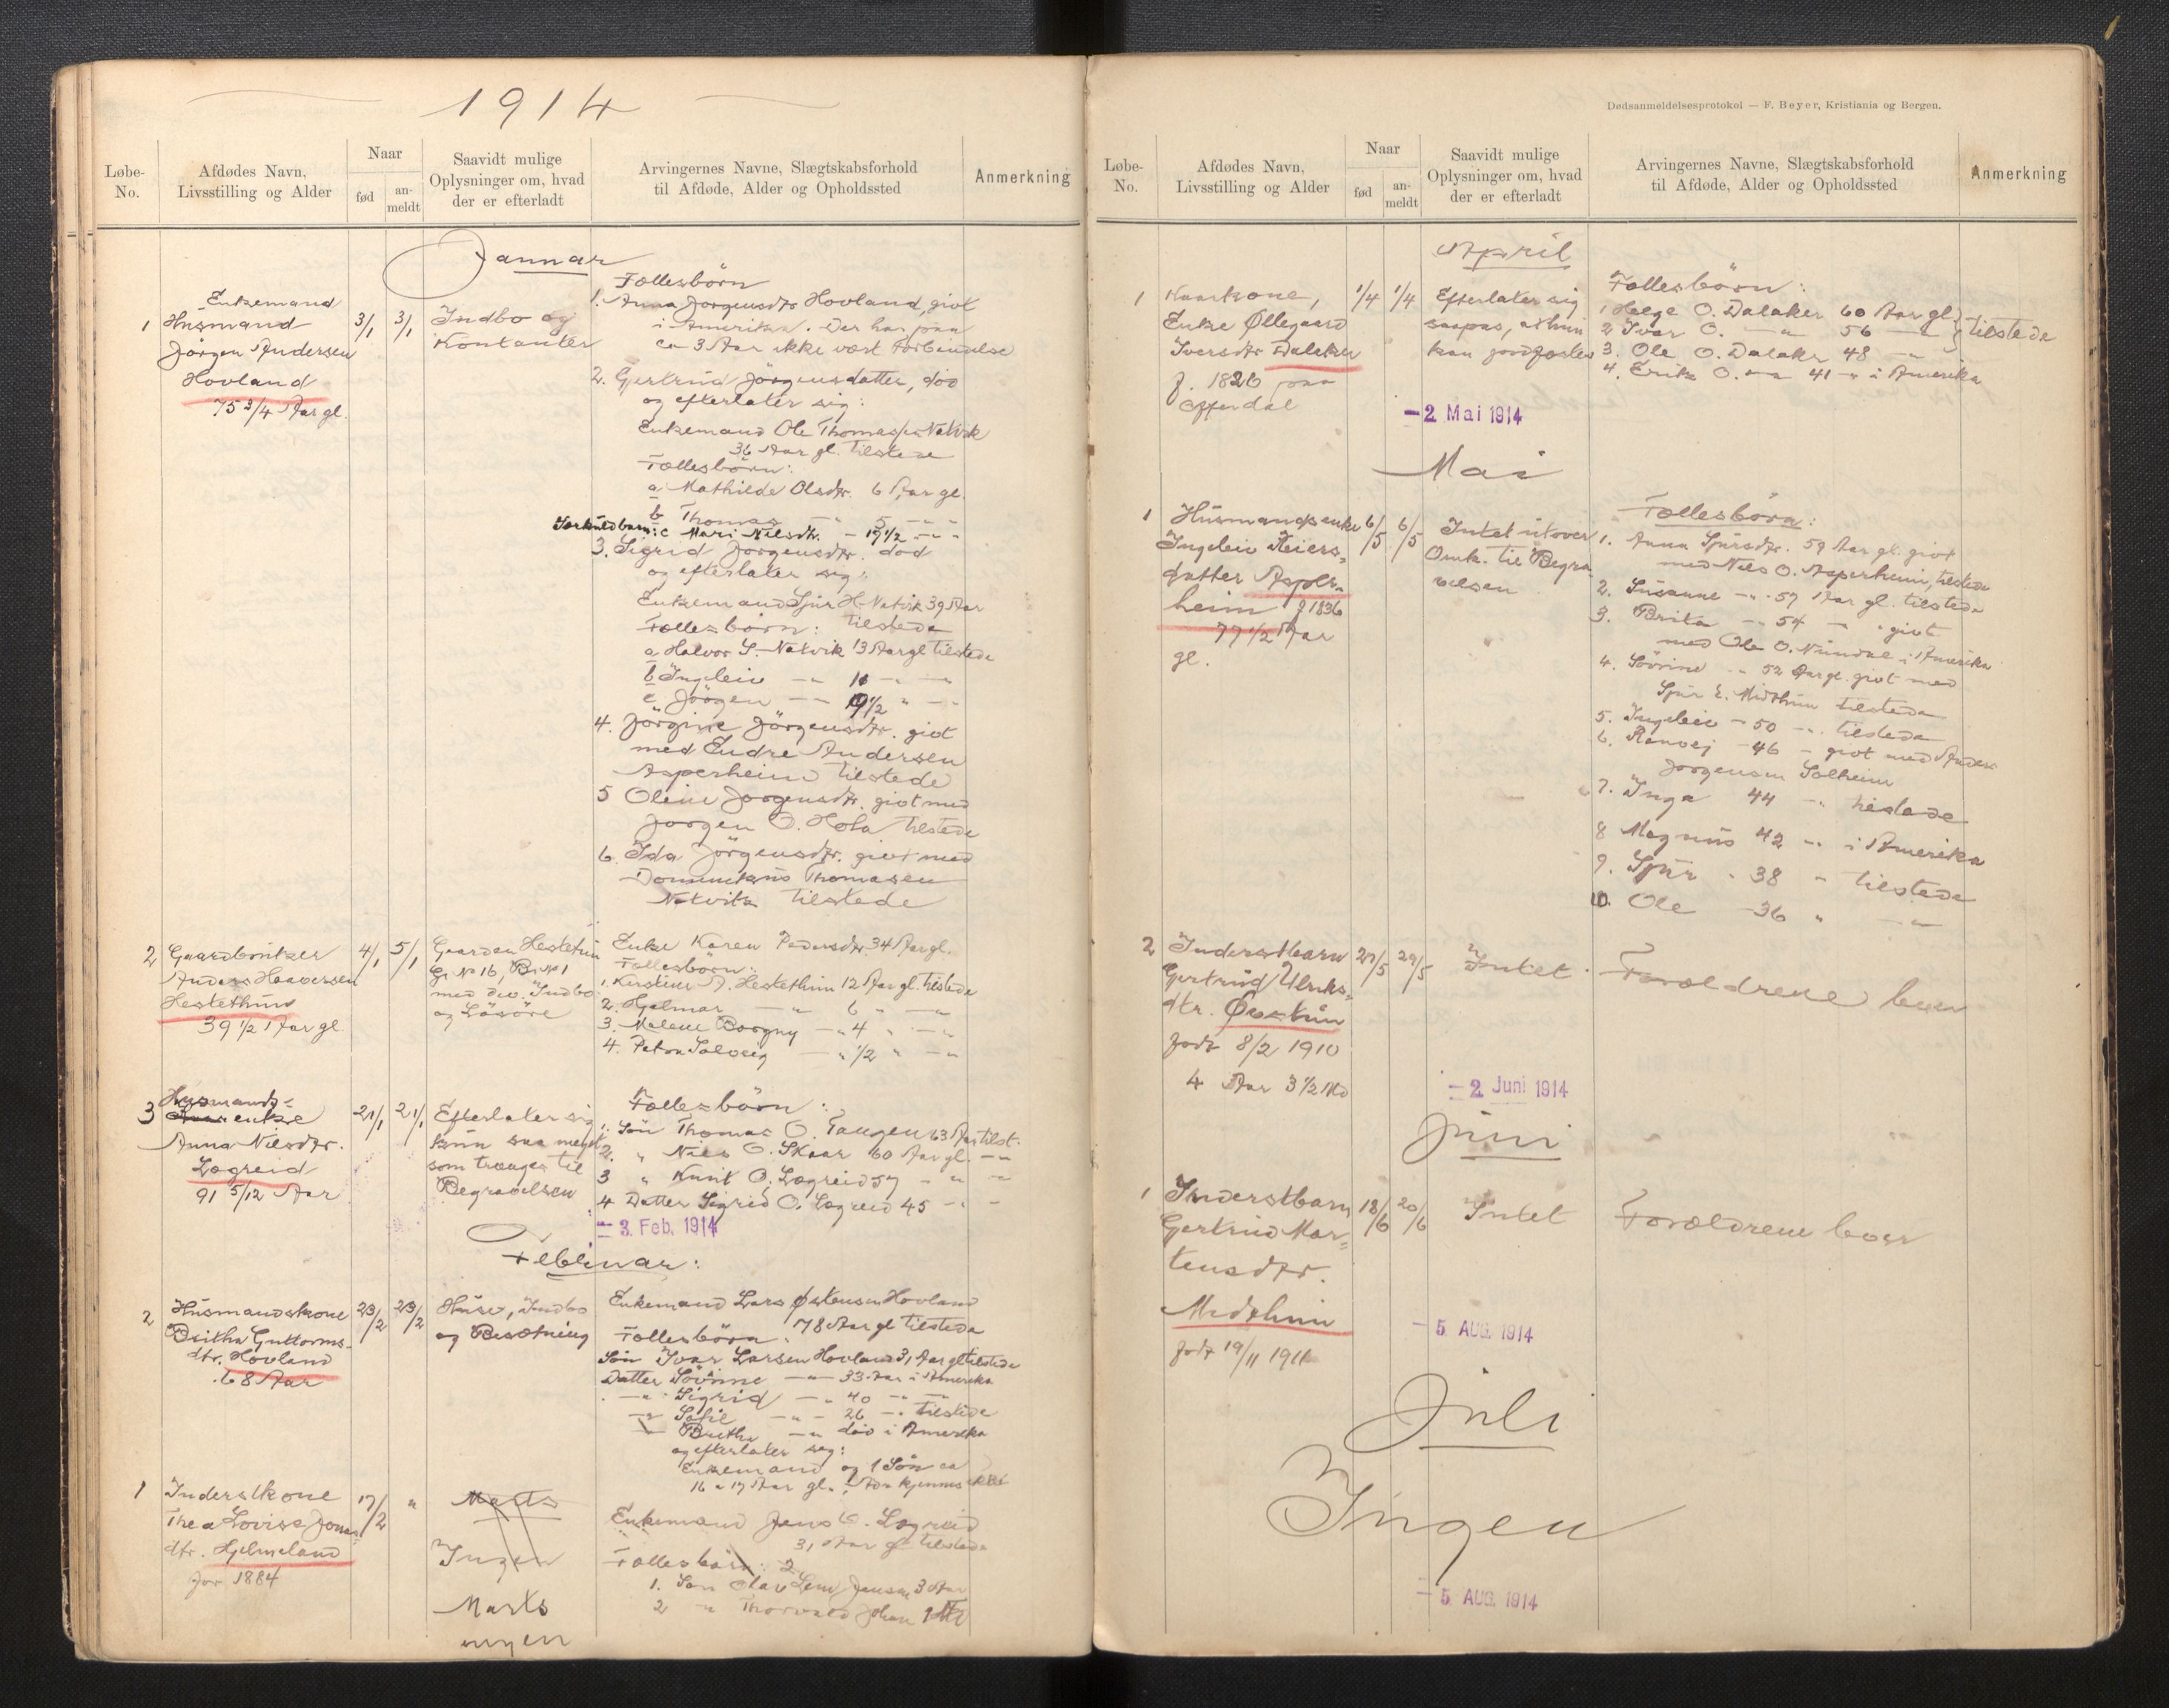 1914
Løbe-
No.
Afdødes Navn,
Livsstilling og Alder
Naar
fød
an-
meldt
Saavidt mulige
Oplysninger om, hvad
der er efterladt
Arvingernes Navne, Slægtskabsforhold
til Afdøde, Alder og Opholdssted
Anmerkning
Januar
Enkemand
1 Husmand
Jörgen Andersen
Hovland
75 3/4 Aar gl.
3/1 3/1
Indbo og
Kontanter
Fællesbörn
1. Anna Jörgensdtr Hovland, givt
i Amerika. Der har paa
ca 3 Aar ikke vært Forbindelse
2. Gjertrud Jörgensdatter, död
og efterlater sig:
Enkemand Ole Thomassen Natvik
36 Aar gl. tilstede
Fællesbörn:
a Mathilde Olsdtr. 6 Aar gl.
b Thomas — " 5 — "
Særkuldbarn: c Mari Nilsdtr. — 17 1/2 — "
3. Sigrid Jörgensdtr. död
og efterlater sig:
Enkemand Sjur H. Natvik 39 Aar
Fællesbörn: tilstede
a Halvor S. Natvik 13 Aar gl tilstede
b Ingeleiv — " 11 — " —
c Jörgen — — 9 1/2 " — "
4. Jörgine Jörgensdtr. givt
med Endre Andersen
Asperheim tilstede
5 Oline Jörgensdtr. givt med
Jörgen O. Hola tilstede
6. Ida Jörgensdtr. givt med
Dominikus Thomasen
Natvik tilstede
2 Gaardbruker
Anders Haavorsen
Hestethun
39 1/2 Aar gl.
4/1 5/1
Gaarden Hestetun
G. No 16, B. No 1
med div. Indbo
og Lösöre
Enke Karen Pedersdtr. 34 Aar gl.
Fællesbörn:
1. Kirstine A. Hestethun 12 Aar gl. tilstede
2. Hjelmar — " 6 " — "
3. Malene Borgny — " 4 " — "
4. Petra Solveig — " 1/2 " — "
Husmands-
3 enke
Anna Nilsdtr.
Lægreid
91 5/12 Aar
21/1 21/1
Efterlater sig
kun saa meget
som trænges til
Begravelsen
Fællesbörn:
1. Sön Thomas O. Tangen 63 Aar tilst.
2. " Nils O. Skaar 60 Aar gl. — "
3 " Knut O. Lægreid 57 — " —
4 Datter Sigrid O. Lægreid 45 — " —
— 3. Feb. 1914
Februar:
2 Husmandskone
Britha Guttorms-
dtr. Hovland
68 Aar
23/2 23/2
Huse, Indbo
og Besætning
Enkemand Lars Östensen Hovland
78 Aar gl tilstede
Fællesbörn:
Sön Ivar Larsen Hovland 31 Aar gl tilstede
Datter Sövinne — " — 33 Aar i Amerika
— " Sigrid — " 40 — " —
— " Sofie — " — 26 — " tilstede
— Britha — " död i Amerika
og efterlater sig:
Enkemand og 1 Sön ca
16 a 17 Aar gl.
1 Inderstkone
Thea Lovise Jons
dtr. Hjelmeland
for 1884
17/2 "
Marts
Ingen
Enkemand Jens O. Lægreid
31 Aar gl tilstede
Fællesbörn: 2
1. Sön Olav Jensen 3 Aar
2 " Thorvald Johan 1
Marts
ingen
Dødsanmeldelsesprotokol — F. Beyer, Kristiania og Bergen.
Løbe-
No.
Afdødes Navn,
Livsstilling og Alder
Naar
fød
an-
meldt
Saavidt mulige
Oplysninger om, hvad
der er efterladt
Arvingernes Navne, Slægtskabsforhold
til Afdøde, Alder og Opholdssted
Anmerkning
April
1 Kaarkone,
Enke Øllegaard
Iversdtr Dalaker
f. 1826 paa
Offerdal
1/4 1/4
Efterlater sig
saapas, at hun
kan jordfæstes
Fællesbörn:
1 Helge O. Dalaker 60 Aar gl
2 Ivar O. — " 56 — "
tilstede
3. Ole O. Dalaker 48 — "
4. Erik O. — " 41 — " i Amerika
— 2. Mai 1914
Mai
1 Husmandsenke
Ingeleiv Reiers-
datter Asper-
heim f 1836
77 1/2 Aar
gl.
6/5 6/5
Intet utover
Omk. til Begra
velsen
Fællesbörn:
1. Anna Sjursdtr. 59 Aar gl. givt
med Nils O. Asperheim, tilstede
2. Susanne — " 57 Aar gl. tilstede
3. Brita — " 54 — " givt
med Ole O. Nundal i Amerika
4. Sövine — " 52 Aar gl. givt med
Sjur E. Midthun tilstede
5. Ingeleiv — 50 — " tilstede
6. Ranvej — 46 — givt med Anders
Jörgensen Solheim
7. Inga 44 — " tilstede
8 Magnus 42 — " i Amerika
9. Sjur " 38 — tilstede
10. Ole — 36 " — "
2 Inderstbarn
Gjertrud Ulriks-
dtr. Øvstun
født 8/2 1910
4 Aar 3 1/2 Md
27/5 29/5
Intet
Forældrene lever
— 2. Juni 1914
Juni
1 Inderstbarn
Gjertrud Mar-
tensdtr.
Midthun
født 19/11 1911
18/6 20/6
Intet
Forældrene lever
— 5. AUG. 1914
Juli
Ingen
— 5. AUG. 1914